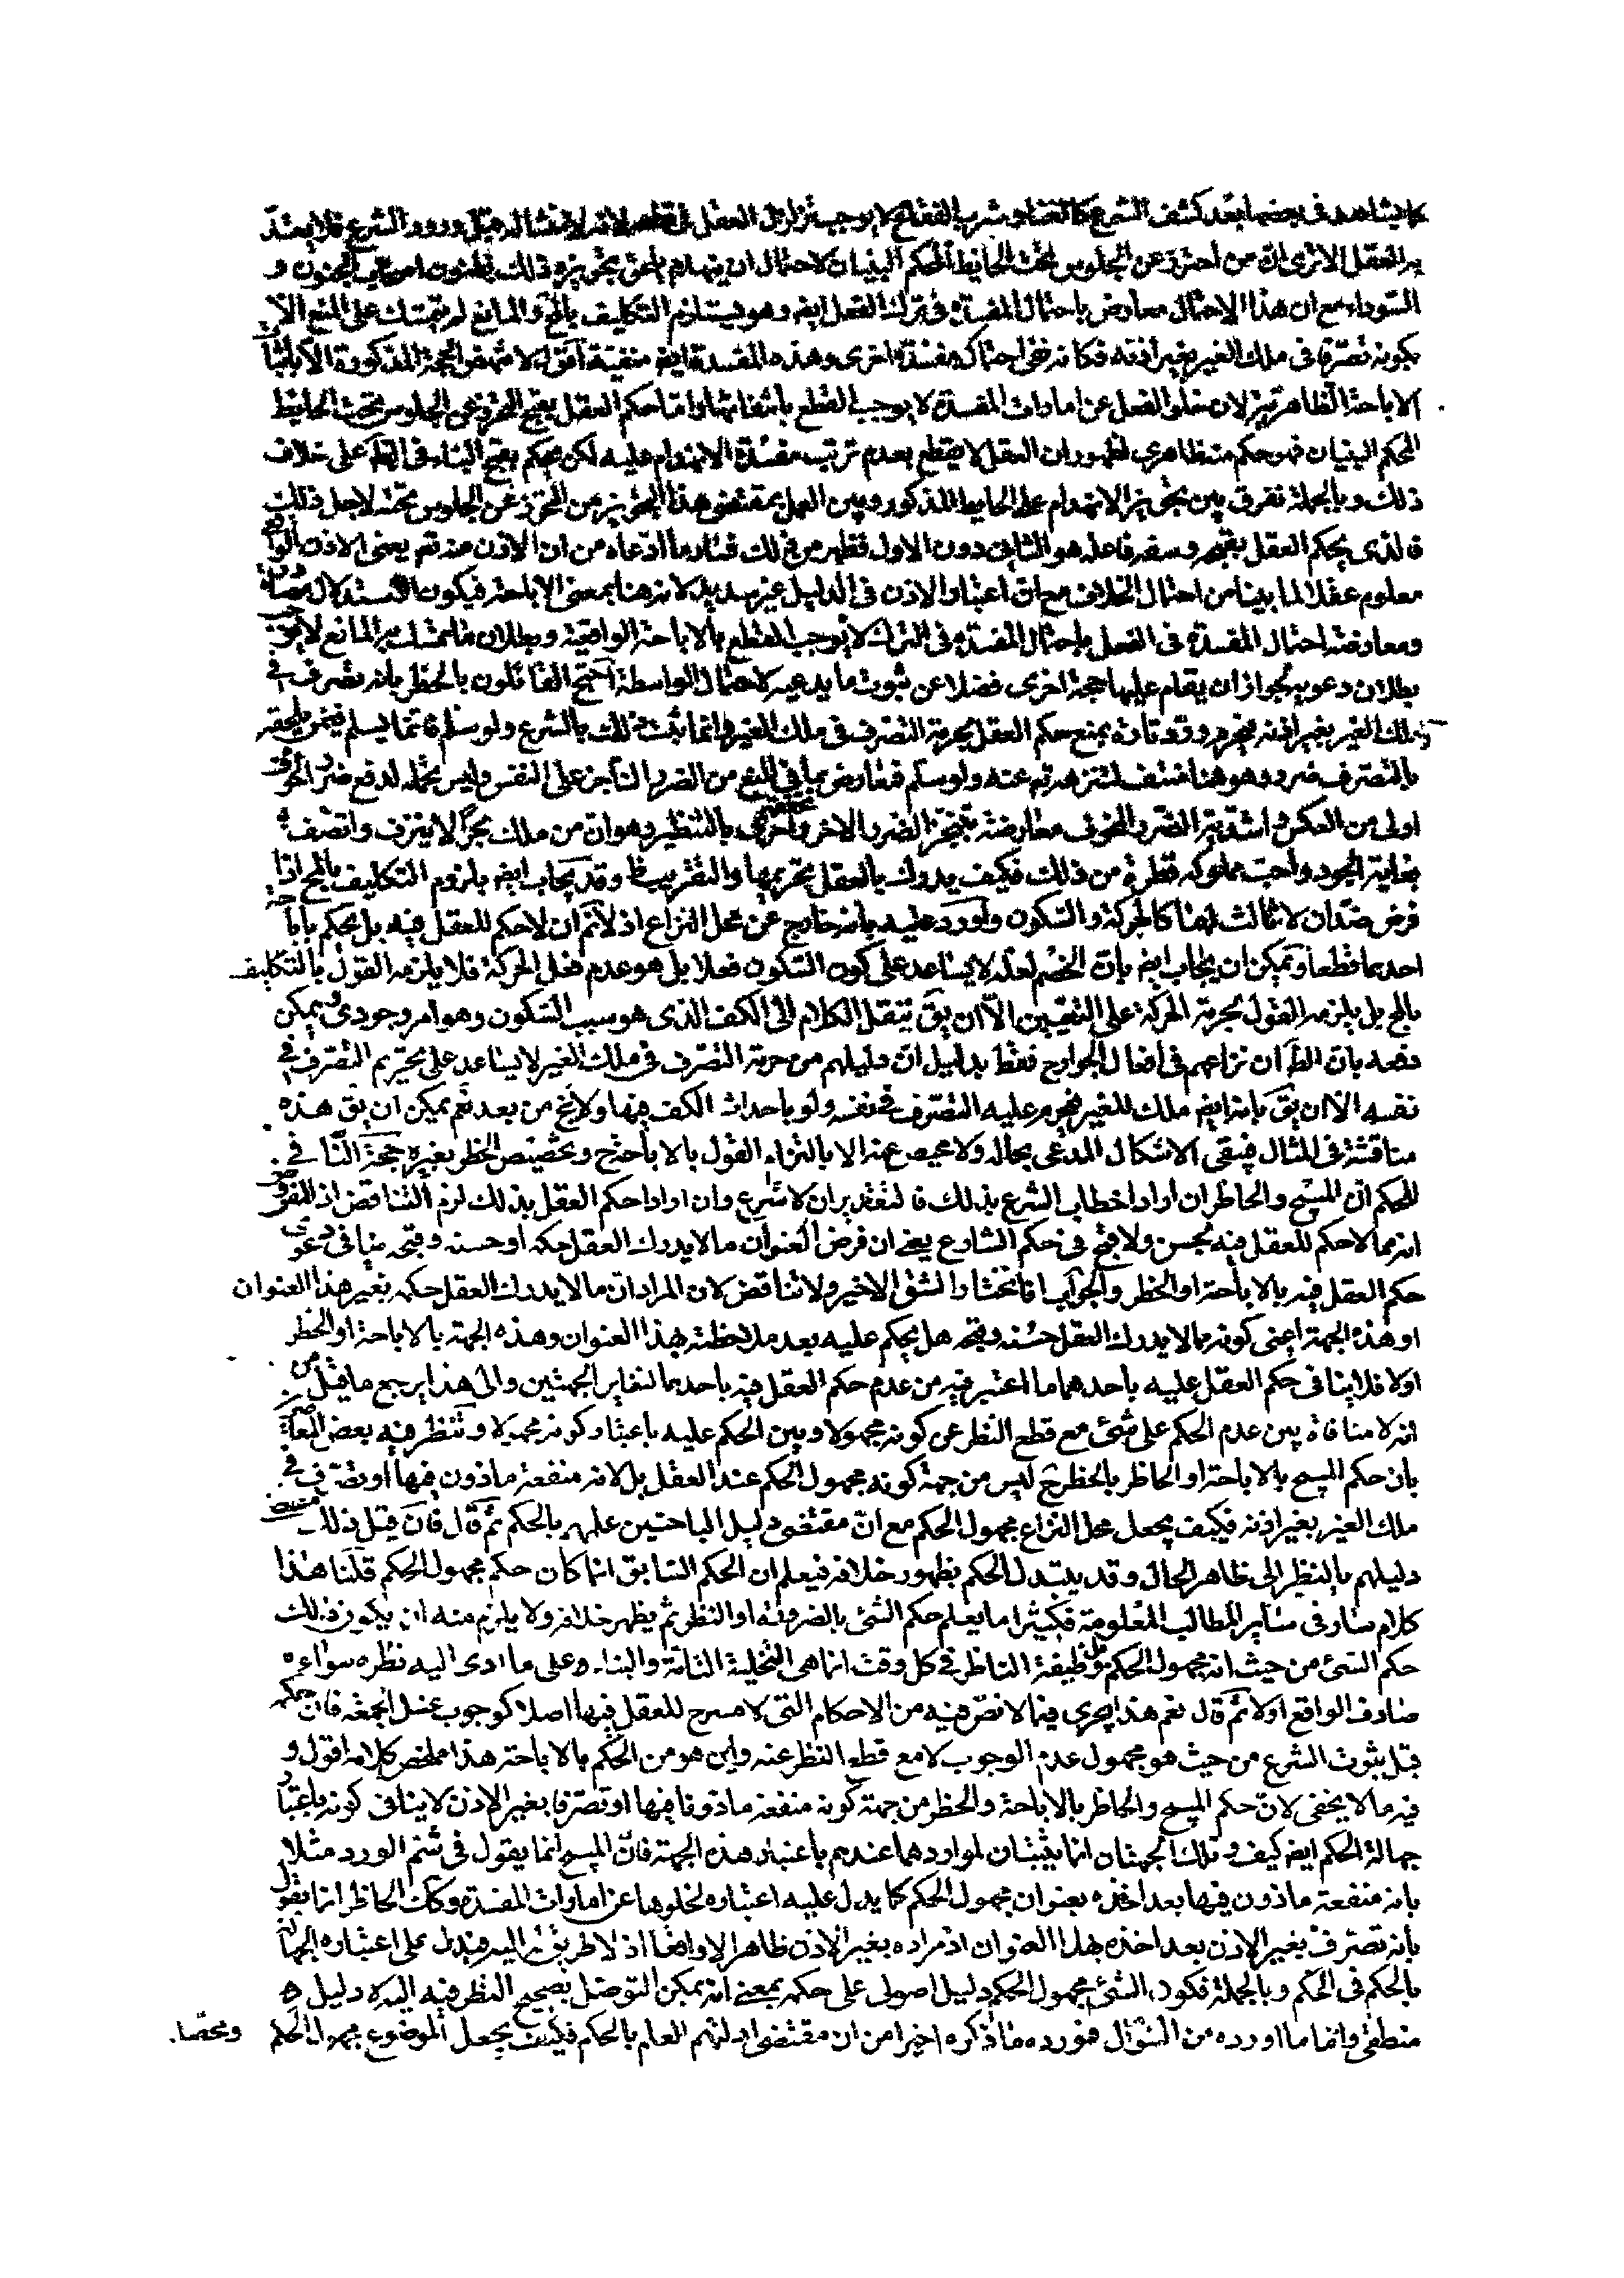 كما يشاهد في بعضها بعد كشف الشرع كالغناء وشرب الفقاع لا يوجب تزلزل العقل في لانه لا منشأ له قبل ورود الشرع فلا يعتدّ
به العقل الا ترى ان من احترز عن الجلوس تحت الحايط المحكم البنيان لاحتمال ان ينهدم بادنى تجويزه ذلك المجنون و
السوداء مع ان هذا الاحتمال معارض باحتمال المفسدة في ترك الفعل ايضه وهو يستلزم التكليف بالمح والمانع لم يتمسك على المنع الا
بكونه تصرفا في ملك الغير بغير اذنه فكانه نفى احتمال مفسدة اخرى وهذه المفسدة ايضه منفية اقول لا تنهض الحجة المذكورة الا باثبات
الاباحة الظاهرية لان خلو الفعل عن امارات المفسدة لا يوجب القطع بانتفائها واما حكم العقل بقبح التحرز عن الجلوس تحت الحايط
المحكم البنيان فهو حكم منه ظاهري لظهور ان العقل لا يقطع بعدم ترتب مفسدة الانهدام عليه لكن يحكم بقبح البناء في الظ على خلاف
ذلك وبالجملة نفرق بين تجويز الانهدام على الحايط المذكور وبين العمل بمقتضى هذا التجويز من التحرز عن الجلوس تحته لاجل ذلك
فالذي يحكم العقل بقبحه وسفه فاعله هو الثاني دون الاول فظهر من ذلك فساد ما ادعاه من ان الاذن منه تم يعني الاذن الواقعي
معلوم عقلا لما بينا من احتمال الخلاف مع ان اعتبار الاذن في الدليل غير سديد لانه هنا بمعنى الاباحة فيكون الاستدلال مصادرة
ومعارضة احتمال المفسدة في الفعل باحتمال المفسدة في الترك لا يوجب القطع بالاباحة الواقعية وبطلان ما تمسك به المانع لا يوجب
بطلان دعويه لجواز ان يقام عليها حجة اخرى فضلا عن ثبوت ما يدعيه لاحتمال الواسطة احتج القائلون بالحظر بانه تصرف في
ملك الغير بغير اذنه فيحرم ورد تارة بمنع حكم العقل بحرمة التصرف في ملك الغير وانما يثبت ذلك بالشرع ولو سلم فانما يسلم فيمن يلحقه
بالتصرف ضرر وهو هنا منتف لتنزهه تم عنه ولو سلم فمعارض بما في المنع من الضرر الناجز على النفس وليس تحمله لدفع ضرر الخوف
اولى من العكس واشدية الضرر المخوف معارضة بتنجز الضرر الاخر واخرى بالتنظير وهو ان من ملك بحرا لا ينزف واتصف
بغاية الجود واحب مملوكه قطرة من ذلك فكيف يدرك بالعقل تحريمها والتقريب ظ وقد يجاب ايضه بلزوم التكليف بالمح اذا
فرض ضدان لا ثالث لهما كالحركة والسكون واورد عليه بانه خارج عن محل النزاع اذ لا نم ان لا حكم للعقل فيه بل يحكم باباحة
احدهما قطعا ويمكن ان يجاب ايضه بان الخصم لعله لا يساعد على كون السكون فعلا بل هو عدم فعل الحركة فلا يلزمه القول بالتكليف
بالمح بل يلزمه القول بحرمة الحركة على التعيين الا ان يق ننقل الكلام الى الكف الذي هو سبب السكون وهو امر وجودي ويمكن
دفعه بان الظ ان نزاعهم في افعال الجوارح فقط بدليل ان دليلهم من حرمة التصرف في ملك الغير لا يساعد على تحريم التصرف في
نفسه الا ان يق بانه ايضه ملك للغير فيحرم عليه التصرف في نفسه ولو باحداث الكف فيها ولا يخ من بعد نعم يمكن ان يق هذه
مناقشة في المثال فيبقى الاشكال المدعى بحاله ولا محيص عنه الا بالتزام القول بالاباحة ح وتخصيص الحظر بغيره حجة النافي
للحكم ان المبيح والحاظر ان ارادا خطاب الشرع بذلك فالتقدير ان لا شرع وان ارادا حكم العقل بذلك لزم التناقض اذ المفروض
انه مما لا حكم للعقل فيه بحسن ولا قبح في حكم الشارع يعني ان فرض العنوان ما لا يدرك العقل حكمه او حسنه وقبحه ينافي دعوى
حكم العقل فيه بالاباحة او الحظر والجواب انا نختار الشق الاخير ولا تناقض لان المراد ان ما لا يدرك العقل حكمه بغير هذا العنوان
او هذه الجهة اعني كونه مما لا يدرك العقل حسنه وقبحه هل يحكم عليه بعد ملاحظته بهذا العنوان وهذه الجهة بالاباحة او الحظر
اولا فلا ينافي حكم العقل عليه باحدهما ما اعتبر فيه من عدم حكم العقل فيه باحدهما لتغاير الجهتين والى هذا يرجع ما قيل من
انه لا منافاة بين عدم الحكم على شيء مع قطع النظر عن كونه مجهولا وبين الحكم عليه باعتبار كونه مجهولا وتنظر فيه بعض المعاصرين
بان حكم المبيح بالاباحة او الحاظر بالحظر ح ليس من جهة كونه مجهول الحكم عند العقل بل لانه منفعة ماذون فيها او تصرف في
ملك الغير بغير اذنه فكيف يجعل محل النزاع مجهول الحكم مع ان مقتضى دليل الباحثين علمهم بالحكم ثم قال فان قيل ذلك مقتضى
دليلهم بالنظر الى ظاهر الحال وقد يتبدل الحكم بظهور خلافه فيعلم ان الحكم السابق انما كان حكم مجهول الحكم قلنا هذا
كلام سار في ساير المطالب المعلومة فكثيرا ما يعلم حكم الشئ بالضرورة او النظر ثم يظهر خلافه ولا يلزم منه ان يكون ذلك
حكم الشئ من حيث انه مجهول الحكم فان وظيفة الناظر في كل وقت انما هي التخلية التامة والبناء على ما ادى اليه نظره سواء
صادف الواقع اولا ثم قال نعم هذا يجري فيما لا نص فيه من الاحكام التي لا مسرح للعقل فيها اصلا كوجوب غسل الجمعة فان حكمه
قبل ثبوت الشرع من حيث هو مجهول عدم الوجوب لا مع قطع النظر عنه واين هو من الحكم بالاباحة هذا ملخص كلامه اقول و
فيه ما لا يخفى لان حكم المبيح والحاظر بالاباحة والحظر من جهة كونه منفعة ماذونا فيها او تصرفا بغير الاذن لا ينافي كونه باعتبار
جهالة الحكم ايضه كيف وتلك الجهتان انما يثبتان لمواردهما عندهم باعتبار هذه الجهة فان المبيح انما يقول في شم الورد مثلا
بانه منفعة ماذون فيها بعد اخذه بعنوان مجهول الحكم كما يدل عليه اعتباره لخلوها عن امارات المفسدة وكك الحاظر انما يقول
بانه تصرف بغير الاذن بعد اخذه بهذا العنوان اذ مراده بغير الاذن ظاهرا لا واقعا اذ لا طريق له اليه فيدل على اعتباره الجهالة
بالحكم في الحكم وبالجملة فكون الشئ مجهول الحكم دليل اصولي على حكمه بمعنى انه يمكن التوصل بصحيح النظر فيه اليه لا دليل
منطقي واما ما اورده من السؤال فهو رده فما ذكره اخيرا من ان مقتضى ادلتهم العلم بالحكم فكيف يجعل الموضوع مجهول الحكم